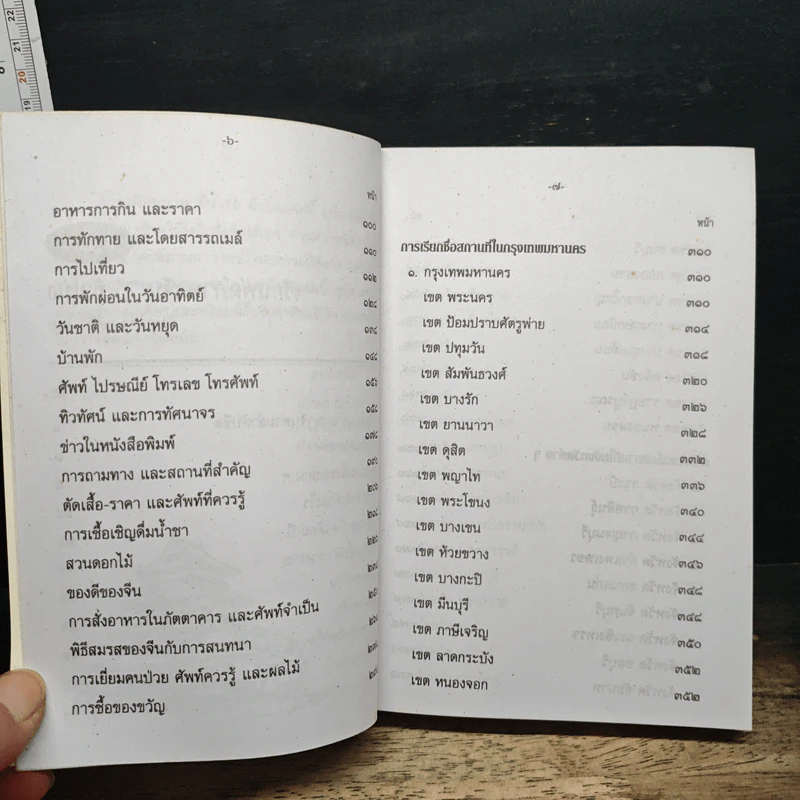 -๖-
หน้า
อาหารการกิน และราคา ๑๐๐
การทักทาย และโดยสารรถเมล์ ๑๑๐
การไปเที่ยว ๑๑๒
การพักผ่อนในวันอาทิตย์ ๑๒๔
วันชาติ และวันหยุด ๑๓๔
บ้านพัก ๑๔๔
ศัพท์ ไปรษณีย์ โทรเลข โทรศัพท์
ทิวทัศน์ และการทัศนาจร
ข่าวในหนังสือพิมพ์
การถามทาง และสถานที่สำคัญ
ตัดเสื้อ-ราคา และศัพท์ที่ควรรู้
การเชื้อเชิญดื่มน้ำชา
สวนดอกไม้
ของดีของจีน
การสั่งอาหารในภัตตาคาร และศัพท์จำเป็น
พิธีสมรสของจีนกับการสนทนา
การเยี่ยมคนป่วย ศัพท์ควรรู้ และผลไม้
การซื้อของขวัญ
-๗-
หน้า
การเรียกชื่อสถานที่ในกรุงเทพมหานคร ๓๑๐
๑. กรุงเทพมหานคร ๓๑๐
เขต พระนคร ๓๑๐
เขต ป้อมปราบศัตรูพ่าย ๓๑๔
เขต ปทุมวัน ๓๑๘
เขต สัมพันธวงศ์ ๓๒๐
เขต บางรัก ๓๒๖
เขต ยานนาวา ๓๒๘
เขต ดุสิต ๓๓๒
เขต พญาไท ๓๓๖
เขต พระโขนง ๓๔๐
เขต บางเขน ๓๔๔
เขต ห้วยขวาง ๓๔๖
เขต บางกะปิ ๓๔๘
เขต มีนบุรี ๓๔๘
เขต ภาษีเจริญ ๓๕๐
เขต ลาดกระบัง ๓๕๒
เขต หนองจอก ๓๕๒